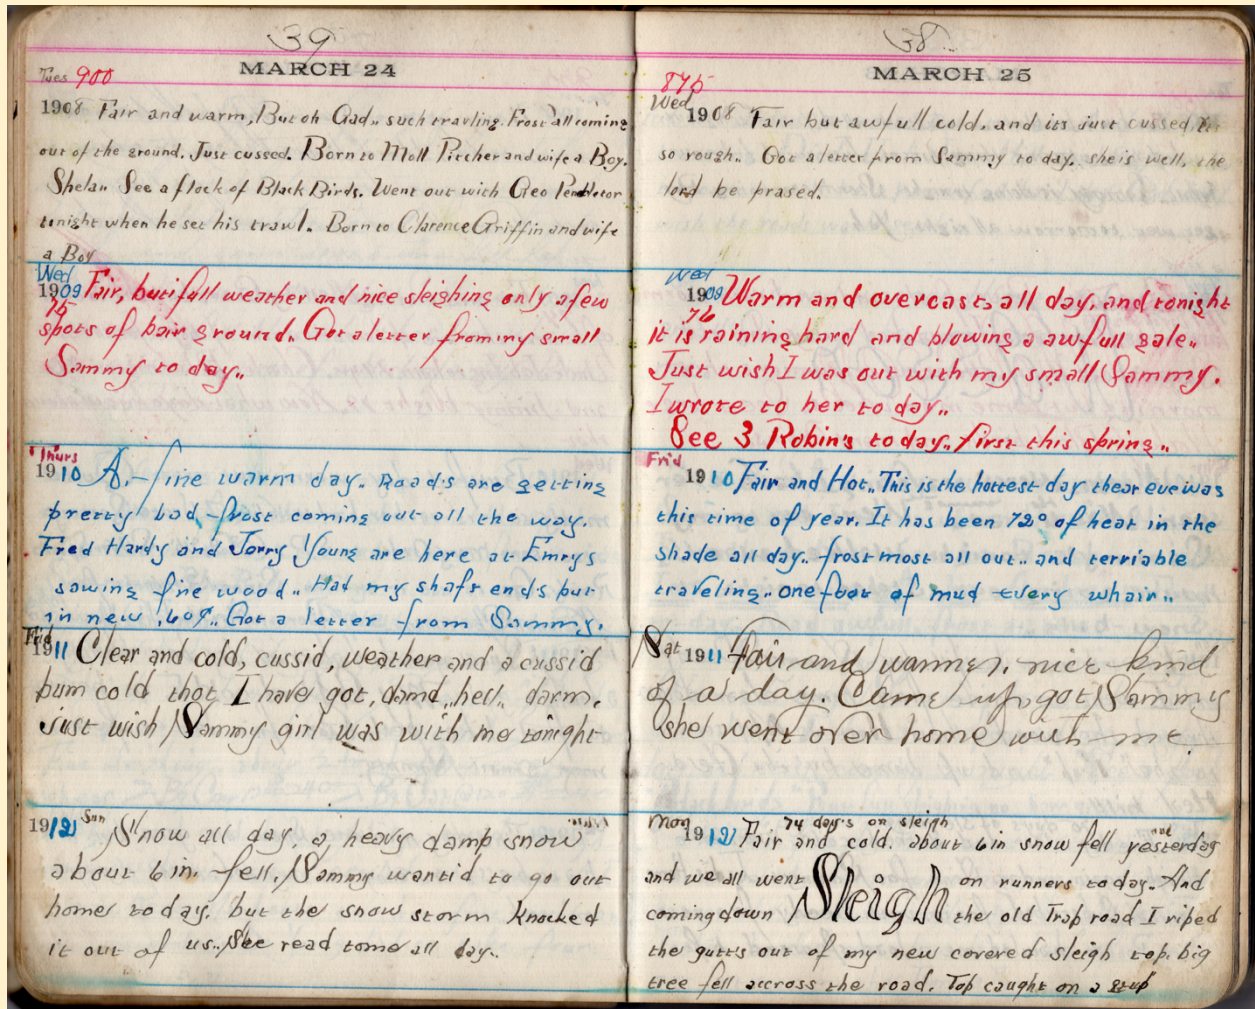 39
MARCH 24
Tues 900
1908 Fair and warm, But oh Gad.. such travling. Frost all coming
out of the ground. Just cussed. Born to Moll Pitcher and wife a Boy.
Shelan See a flock of Black Birds. Went out with Geo Pendletor
tonight when he set his trawl. Born to Clarence Griffin and wife
a Boy
Wed
1909 Fair, butifull weather and nice sleighing only a few
75
spots of bair ground. Got a letter from my small
Sammy to day..
Thurs
1910 A. fine warm day. Roads are getting
pretty bad, frost coming out all the way.
Fred Hardy and Jorry Young are here at Emrys
sawing fire wood.. Had my shaft ends put
in new .60¢. Got a letter from Sammy.
Frid
1911 Clear and cold, cussid, weather and a cussid
bum cold that I have got, damd,, hell,, darm.
just wish Sammy girl was with me tonight
1912 Sun Snow all day. a, heavy damp snow
about 6 in. fell. Sammy wantid to go out
home to day. but the snow storm knocked
it out of us.. See read to me all day..
38..
MARCH 25
875
Wed
1908 Fair but awfull cold. and its just cussed,
so rough.. Got a letter from Sammy to day. she is well, the
lord be prased.
Wed
1909 Warm and overcast, all day, and tonight
76
it is raining hard and blowing a awfull gale..
Just wish I was out with my small Sammy.
I wrote to her to day..
See 3 Robin's to day.. first this spring..
Frid
1910 Fair and Hot.. This is the hottest day thear eve was
this time of year. It has been 72° of heat in the
shade all day.. frost most all out.. and terriable
traveling.. one foot of mud every whair..
Sat 1911 Fair and warmer. nice kind
of a day. Came up got Sammy
she went over home with me.
Mon 74 day's on sleigh
1912 Fair and cold. about 6 in snow fell yesterday
and we all went Sleigh on runners to day. And
coming down the old Trap road I riped
the gutt's out of my new covered sleigh top. big
tree fell accross the road. Top caught on a stub